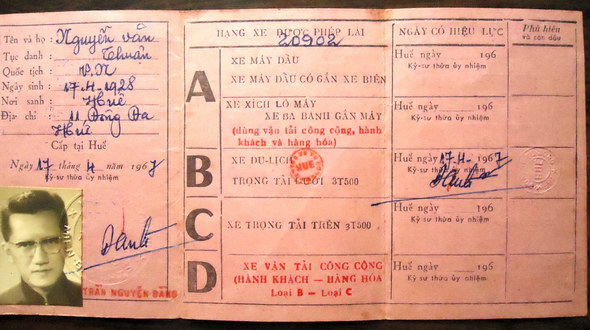 Tên và họ : Nguyễn văn
Tục danh : Thuần
Quốc tịch : V.N
Ngày sinh : 17-4-1928
Nơi sanh : Huế
Địa chỉ : 11, Đống Đa
Huế
Cấp tại Huế
Ngày 17 tháng 4 năm 1967
Kỹ-sư thừa ủy nhiệm
TRẦN NGUYÊN ĐĂNG
HẠNG XE ĐƯỢC PHÉP LÁI
20902
A
XE MÁY DẦU
XE MÁY DẦU CÓ GẮN XE BIÊN
XE XÍCH LÔ MÁY
XE BA BÁNH GẮN MÁY
(dùng vận tải công cộng, hành
khách và hàng hóa)
B
XE DU-LỊCH
TRỌNG TẢI DƯỚI 3T500
HUẾ
C
XE TRỌNG TẢI TRÊN 3T500
D
XE VẬN TẢI CÔNG CỘNG
(HÀNH KHÁCH — HÀNG HÓA
Loại B — Loại C
NGÀY CÓ HIỆU LỰC
Huế ngày 196
Kỹ-sư thừa ủy nhiệm
Huế ngày 196
Kỹ-sư thừa ủy nhiệm
Huế ngày 17-4- 1967
Kỹ-sư thừa ủy nhiệm
Huế ngày 196
Kỹ-sư thừa ủy nhiệm
Huế ngày 196
Kỹ-sư thừa ủy nhiệm
Phù hiệu